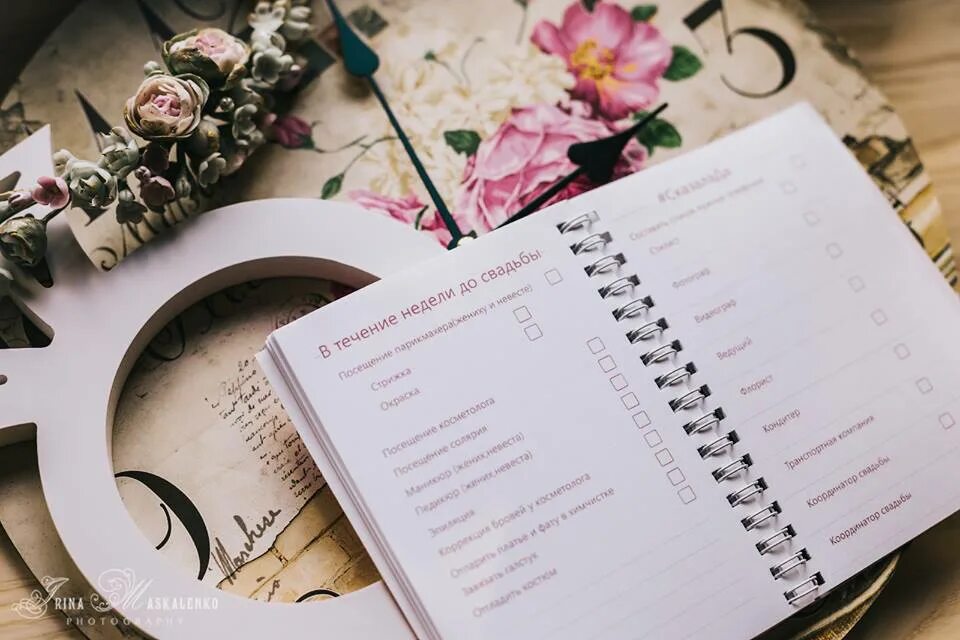 5
В течение недели до свадьбы
Посещение парикмахера(жениху и невесте)
Стрижка
Окраска
Посещение косметолога
Посещение солярия
Маникюр (жених,невеста)
Педикюр (жених,невеста)
Эпиляция
Коррекция бровей у косметолога
Отпарить платье и фату в химчистке
Завязать галстук
Отгладить костюм
#СказалиДа
Составить список
Стилист
Фотограф
Видеограф
Ведущий
Флорист
Кондитер
Транспортная компания
Координатор свадьбы
Координатор свадьбы
IRINA MASKALENKO
PHOTOGRAPHY